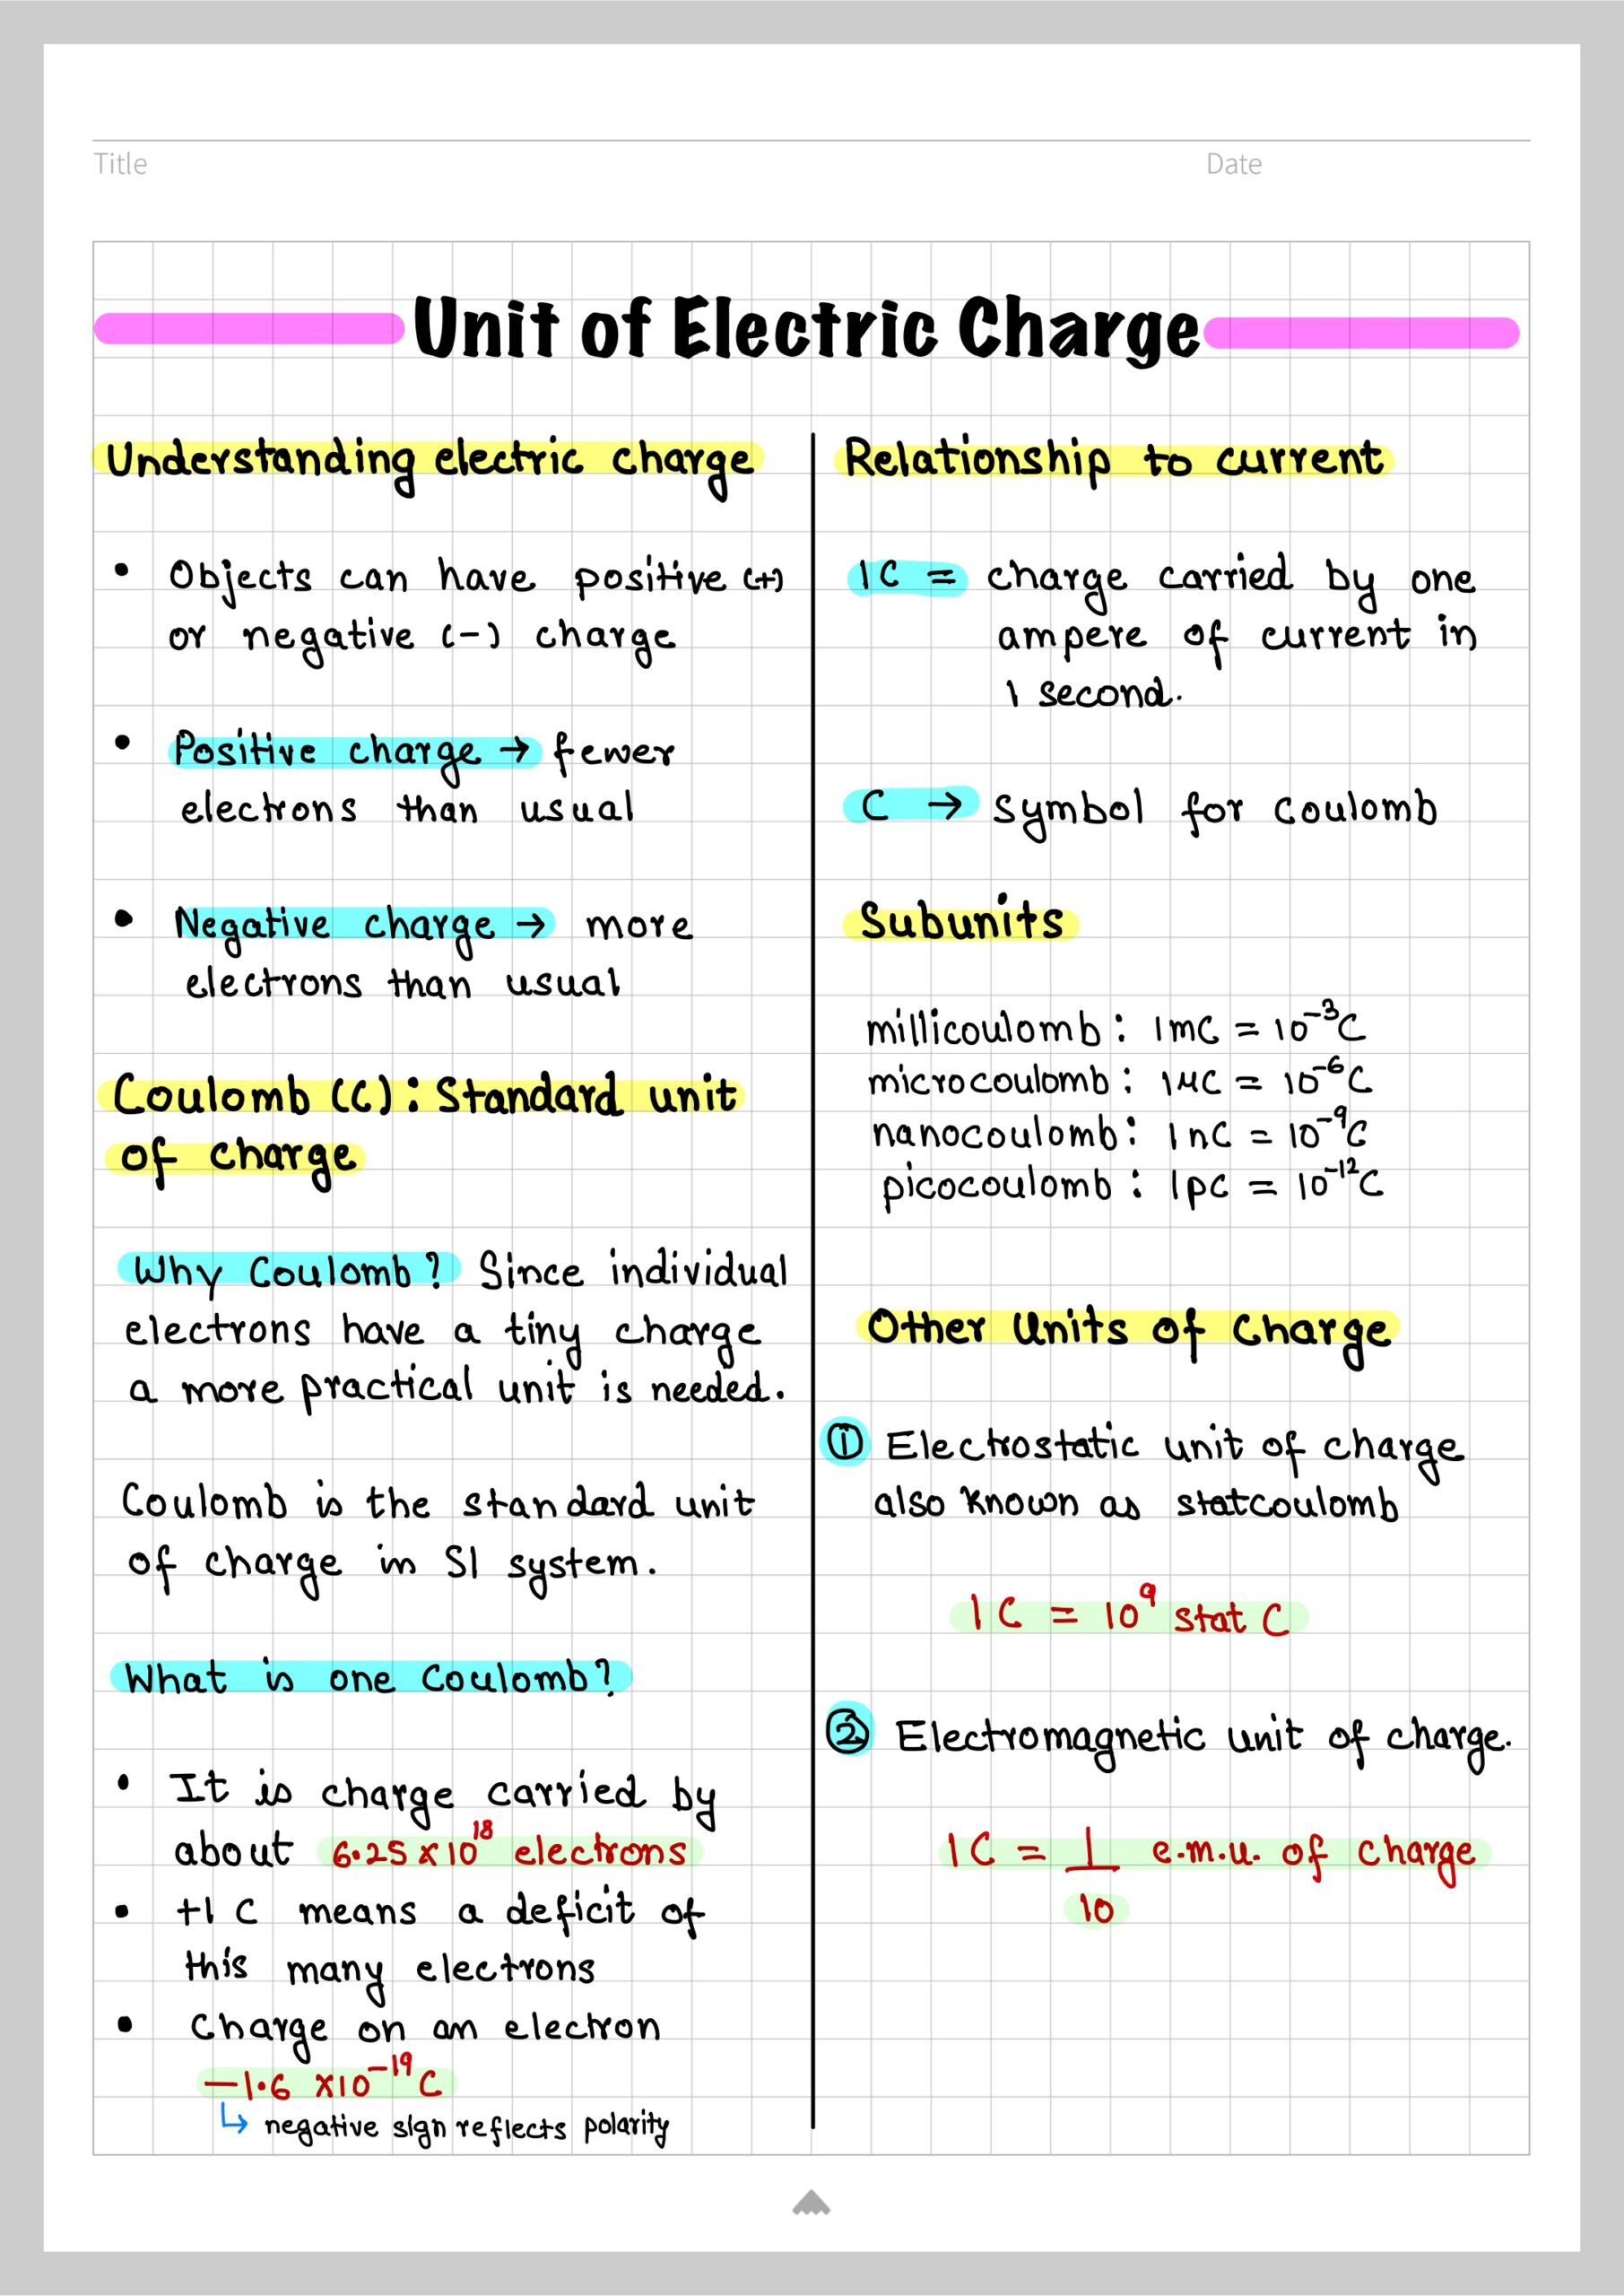 Title
Date
Unit of Electric Charge
Understanding electric charge
• Objects can have positive (+)
or negative (-) charge
• Positive charge → fewer
electrons than usual
• Negative charge → more
electrons than usual
Coulomb (C): Standard unit
of charge
Why Coulomb? Since individual
electrons have a tiny charge
a more practical unit is needed.
Coulomb is the standard unit
of charge in SI system.
What is one Coulomb?
• It is charge carried by
about 6.25 × 10¹⁸ electrons
• +1 C means a deficit of
this many electrons
• Charge on an electron
−1.6 × 10⁻¹⁹ C
↳ negative sign reflects polarity
Relationship to current
1C = charge carried by one
ampere of current in
1 second.
C → symbol for coulomb
Subunits
millicoulomb: 1mC = 10⁻³C
microcoulomb: 1μC = 10⁻⁶C
nanocoulomb: 1nC = 10⁻⁹C
picocoulomb: 1pC = 10⁻¹²C
Other Units of Charge
① Electrostatic unit of charge
also known as statcoulomb
1C = 10⁹ stat C
② Electromagnetic unit of charge.
1C = 1/10 e.m.u. of charge